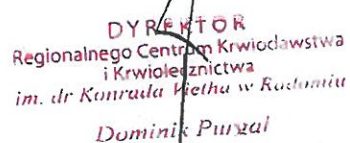 DYREKTOR
Regionalnego Centrum Krwiodawstwa
i Krwiolecznictwa
im. dr Konrada Vietha w Radomiu
Dominik